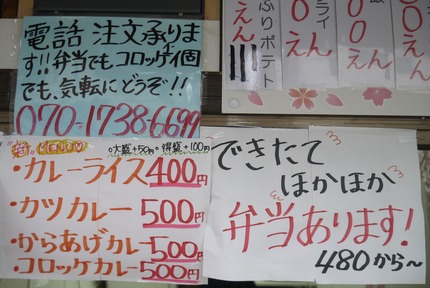 電話 注文承りま
す!! 弁当でもコロッケ1個
でも、気転にどうぞ!!
070-1738-6699
ふりポテト
ライ
00えん
00えん
00えん
"新" MENU♡ 。大盛+50円 。特盛+100円
・カレーライス 400円
・カツカレー 500円
・からあげカレー 500円
・コロッケカレー 500円
できたて
ほかほか
弁当あります!
480から〜